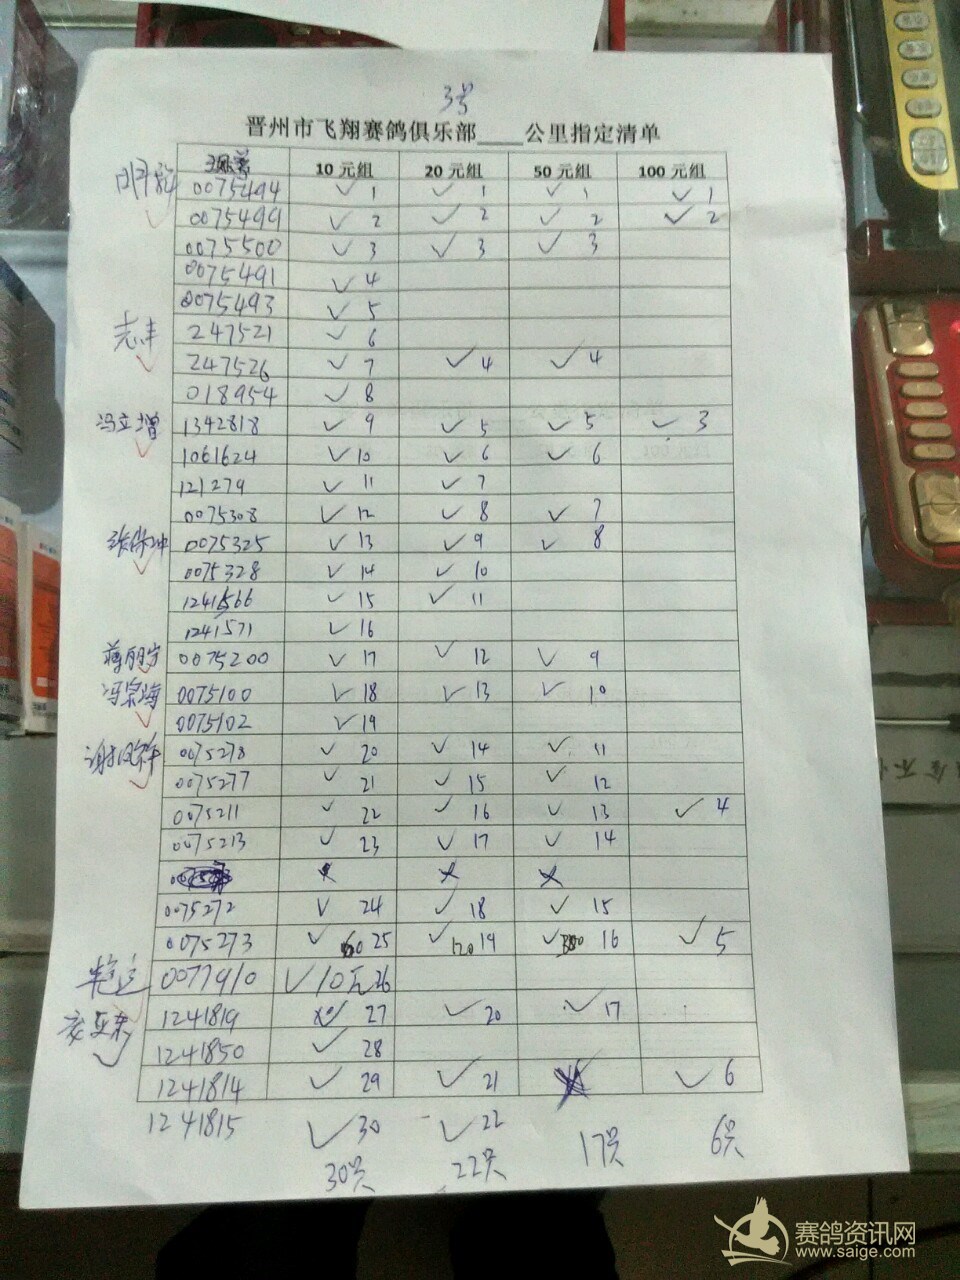 3号
晋州市飞翔赛鸽俱乐部____公里指定清单
10元组 20元组 50元组 100元组
0075494 ✓ 1 ✓ 1 ✓ 1 ✓ 1
0075499 ✓ 2 ✓ 2 ✓ 2 ✓ 2
0075500 ✓ 3 ✓ 3 ✓ 3
0075491 ✓ 4
0075493 ✓ 5
247521 ✓ 6
247526 ✓ 7 ✓ 4 ✓ 4
018954 ✓ 8
冯立增 1342818 ✓ 9 ✓ 5 ✓ 5 ✓ 3
1061624 ✓ 10 ✓ 6 ✓ 6
121279 ✓ 11 ✓ 7
0075308 ✓ 12 ✓ 8 ✓ 7
0075325 ✓ 13 ✓ 9 ✓ 8
0075328 ✓ 14 ✓ 10
1241566 ✓ 15 ✓ 11
1241571 ✓ 16
0075200 ✓ 17 ✓ 12 ✓ 9
0075100 ✓ 18 ✓ 13 ✓ 10
0075102 ✓ 19
0075278 ✓ 20 ✓ 14 ✓ 11
0075277 ✓ 21 ✓ 15 ✓ 12
0075211 ✓ 22 ✓ 16 ✓ 13 ✓ 4
0075213 ✓ 23 ✓ 17 ✓ 14
0075272 ✓ 24 ✓ 18 ✓ 15
0075273 ✓ 25 ✓ 120 19 ✓ 16 ✓ 5
0077910 ✓ 10元 26
1241819 ✓ 27 ✓ 20 ✓ 17
1241850 ✓ 28
1241814 ✓ 29 ✓ 21 ✓ 6
1241815 ✓ 30 ✓ 22
30只 22只 17只 6只
赛鸽资讯网
www.saige.com